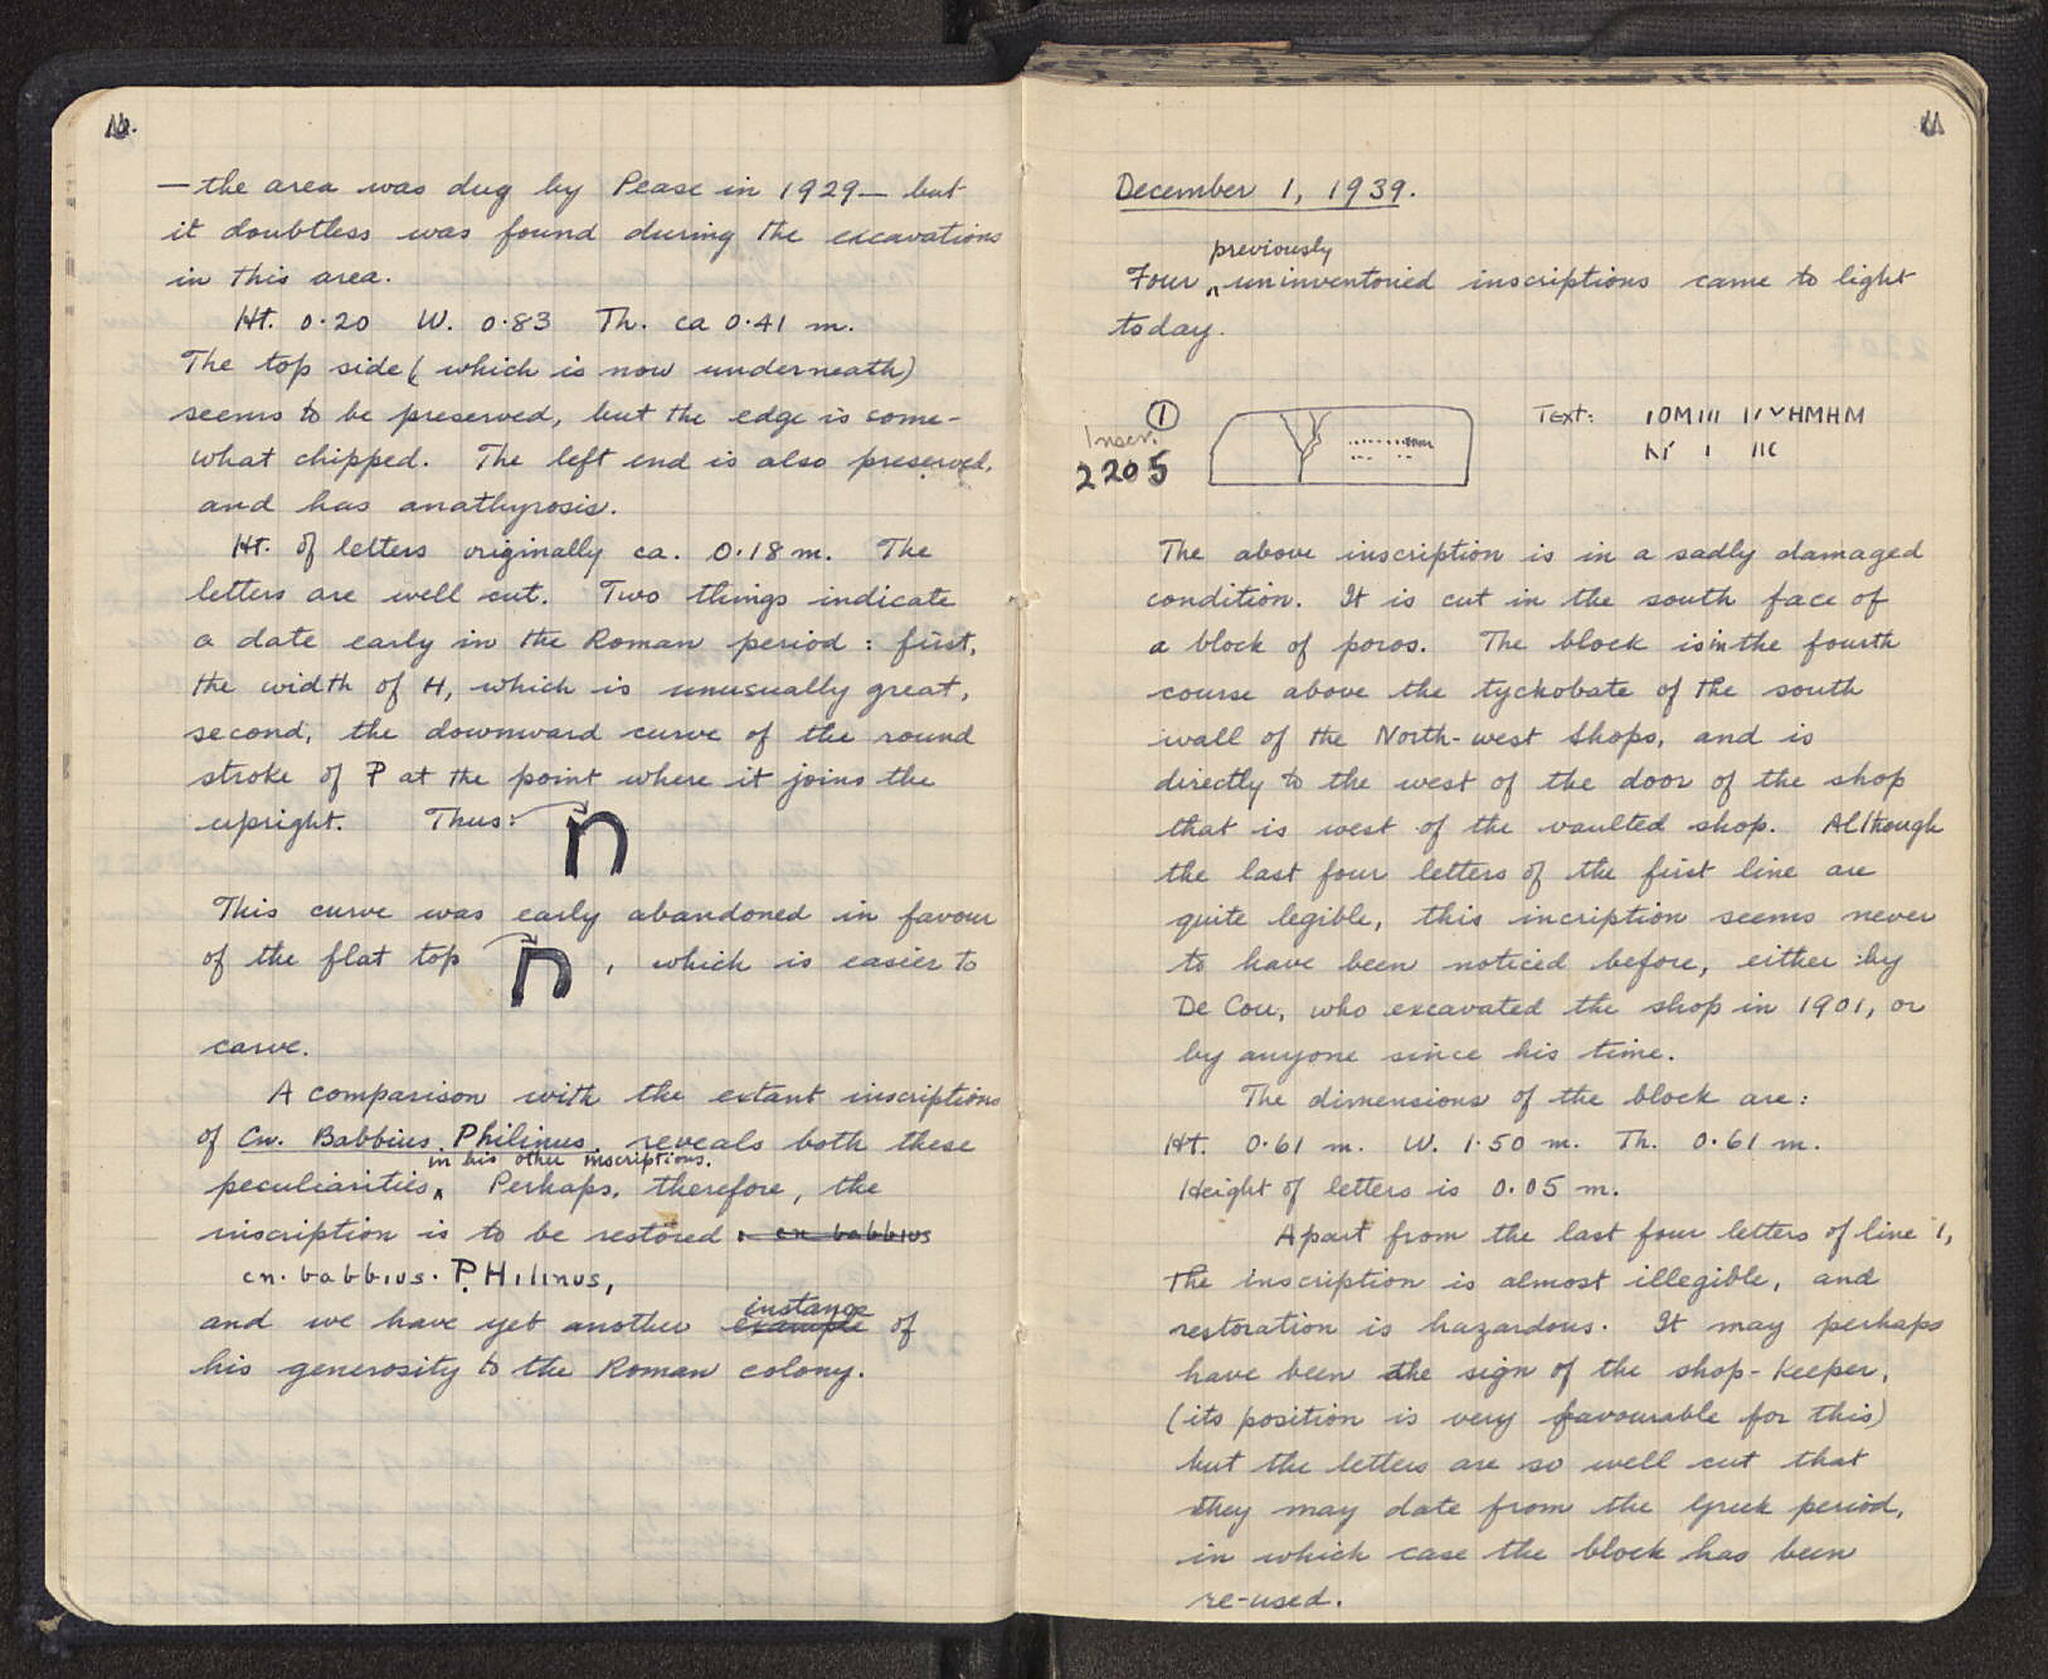 — the area was dug by Pease in 1929 — but
it doubtless was found during the excavations
in this area.
Ht. 0.20 W. 0.83 Th. ca 0.41 m.
The top side (which is now underneath)
seems to be preserved, but the edge is some-
what chipped. The left end is also preserved,
and has anathyrosis.
Ht. of letters originally ca. 0.18 m. The
letters are well cut. Two things indicate
a date early in the Roman period: first,
the width of H, which is unusually great,
second, the downward curve of the round
stroke of P at the point where it joins the
upright. Thus:
This curve was early abandoned in favour
of the flat top , which is easier to
carve.
A comparison with the extant inscriptions
of Cn. Babbius Philinus reveals both these
in his other inscriptions.
peculiarities. Perhaps, therefore, the
inscription is to be restored: cn babbius
cn. babbius. PHilinus,
instance
and we have yet another example of
his generosity to the Roman colony.
11
December 1, 1939.
previously
Four uninventoried inscriptions came to light
today.
1
Inscr.
2205
Text: IOMIII
The above inscription is in a sadly damaged
condition. It is cut in the south face of
a block of poros. The block is in the fourth
course above the tyckobate of the south
wall of the North-west Shops, and is
directly to the west of the door of the shop
that is west of the vaulted shop. Although
the last four letters of the first line are
quite legible, this incription seems never
to have been noticed before, either by
De Cou, who excavated the shop in 1901, or
by anyone since his time.
The dimensions of the block are:
Ht. 0.61 m. W. 1.50 m. Th. 0.61 m.
Height of letters is 0.05 m.
Apart from the last four letters of line 1,
the inscription is almost illegible, and
restoration is hazardous. It may perhaps
have been the sign of the shop-keeper,
(its position is very favourable for this)
but the letters are so well cut that
they may date from the Greek period,
in which case the block has been
re-used.